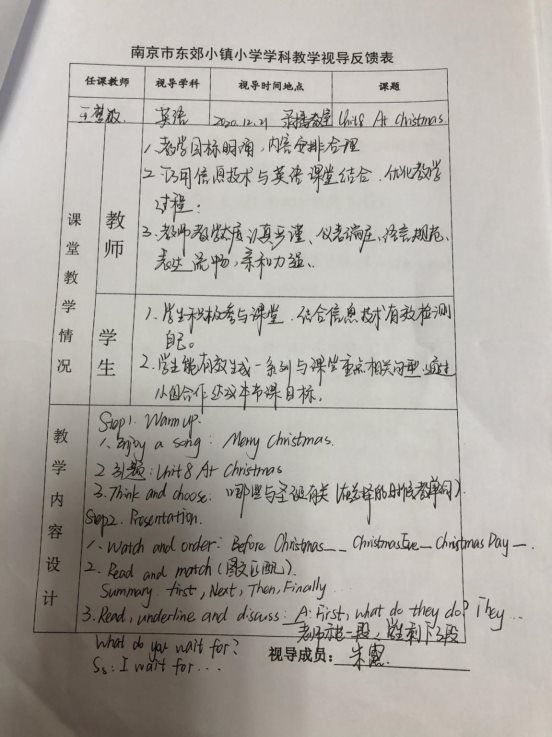 南京市东郊小镇小学学科教学视导反馈表
任课教师 视导学科 视导时间地点 课题
英语 2020.12.21 录播教室 Unit8 At Christmas
课堂教学情况
教师
1、教学目标明确,内容安排合理
2、巧用信息技术与英语课堂结合,优化教学
过程。
3、教师教学态度认真严谨、仪表端庄、语言规范、
表达流畅,亲和力强、
学生
1、学生积极参与课堂,结合信息技术有效检测
自己。
2、学生能有效生成一系列与课堂重点相关问题,
小组合作达成本节课目标。
教学内容设计
Step1. Warm up.
1. Enjoy a song: Merry Christmas.
2. 引题: Unit 8 At Christmas
3. Think and choose: 哪些与圣诞有关
Step2. Presentation.
1. Watch and order: Before Christmas__ Christmas Eve__ Christmas Day__.
2. Read and match (图文匹配).
Summary: First, Next, Then, Finally...
3. Read, underline and discuss: A: First, what do they do? They...
老师示范一段,学生剩下3段
What do you wait for?
Ss: I wait for...
视导成员:朱